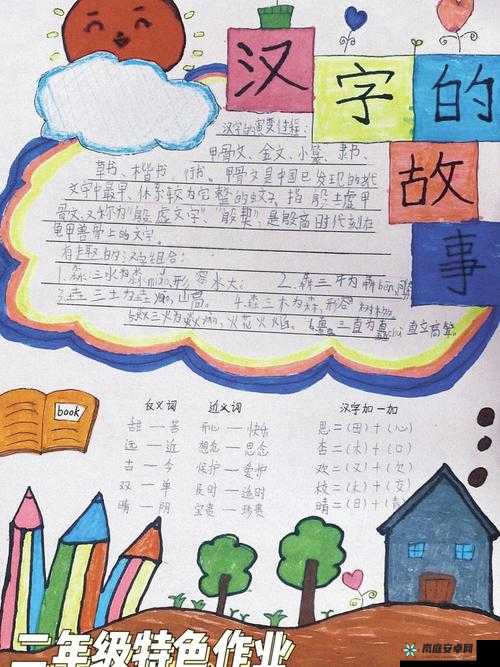 汉字的故事
汉字的演变过程:
甲骨文、金文、小篆、隶书、
草书、楷书、行书。甲骨文是中国已发现的
文字中最早、体系较为完整的文字。
骨文,又称为"殷虚文字"、"殷契",是殷商时代刻在
龟甲兽骨上的文字。
有趣的汉字组合:
1.淼:三水为淼miǎo,形容水大; 2.犇三牛为犇bēn
3.垚三土为垚,山高。 4.森三木为森,形容树
5.焱三火为焱,火花火焰。 6.矗三直为矗chù 直立高耸。
book
反义词 近义词 汉字加一加
甜—苦 开心—快乐 思=(田)+(心)
远—近 想念—思念 杏=(木)+(口)
古—今 保护—爱护 欢=(又)+(欠)
双—单 及时—适时 校=(木)+(交)
晴—阴 宝贵—珍贵 晴=(日)+(青
二年级特色作业
南庭安卓网